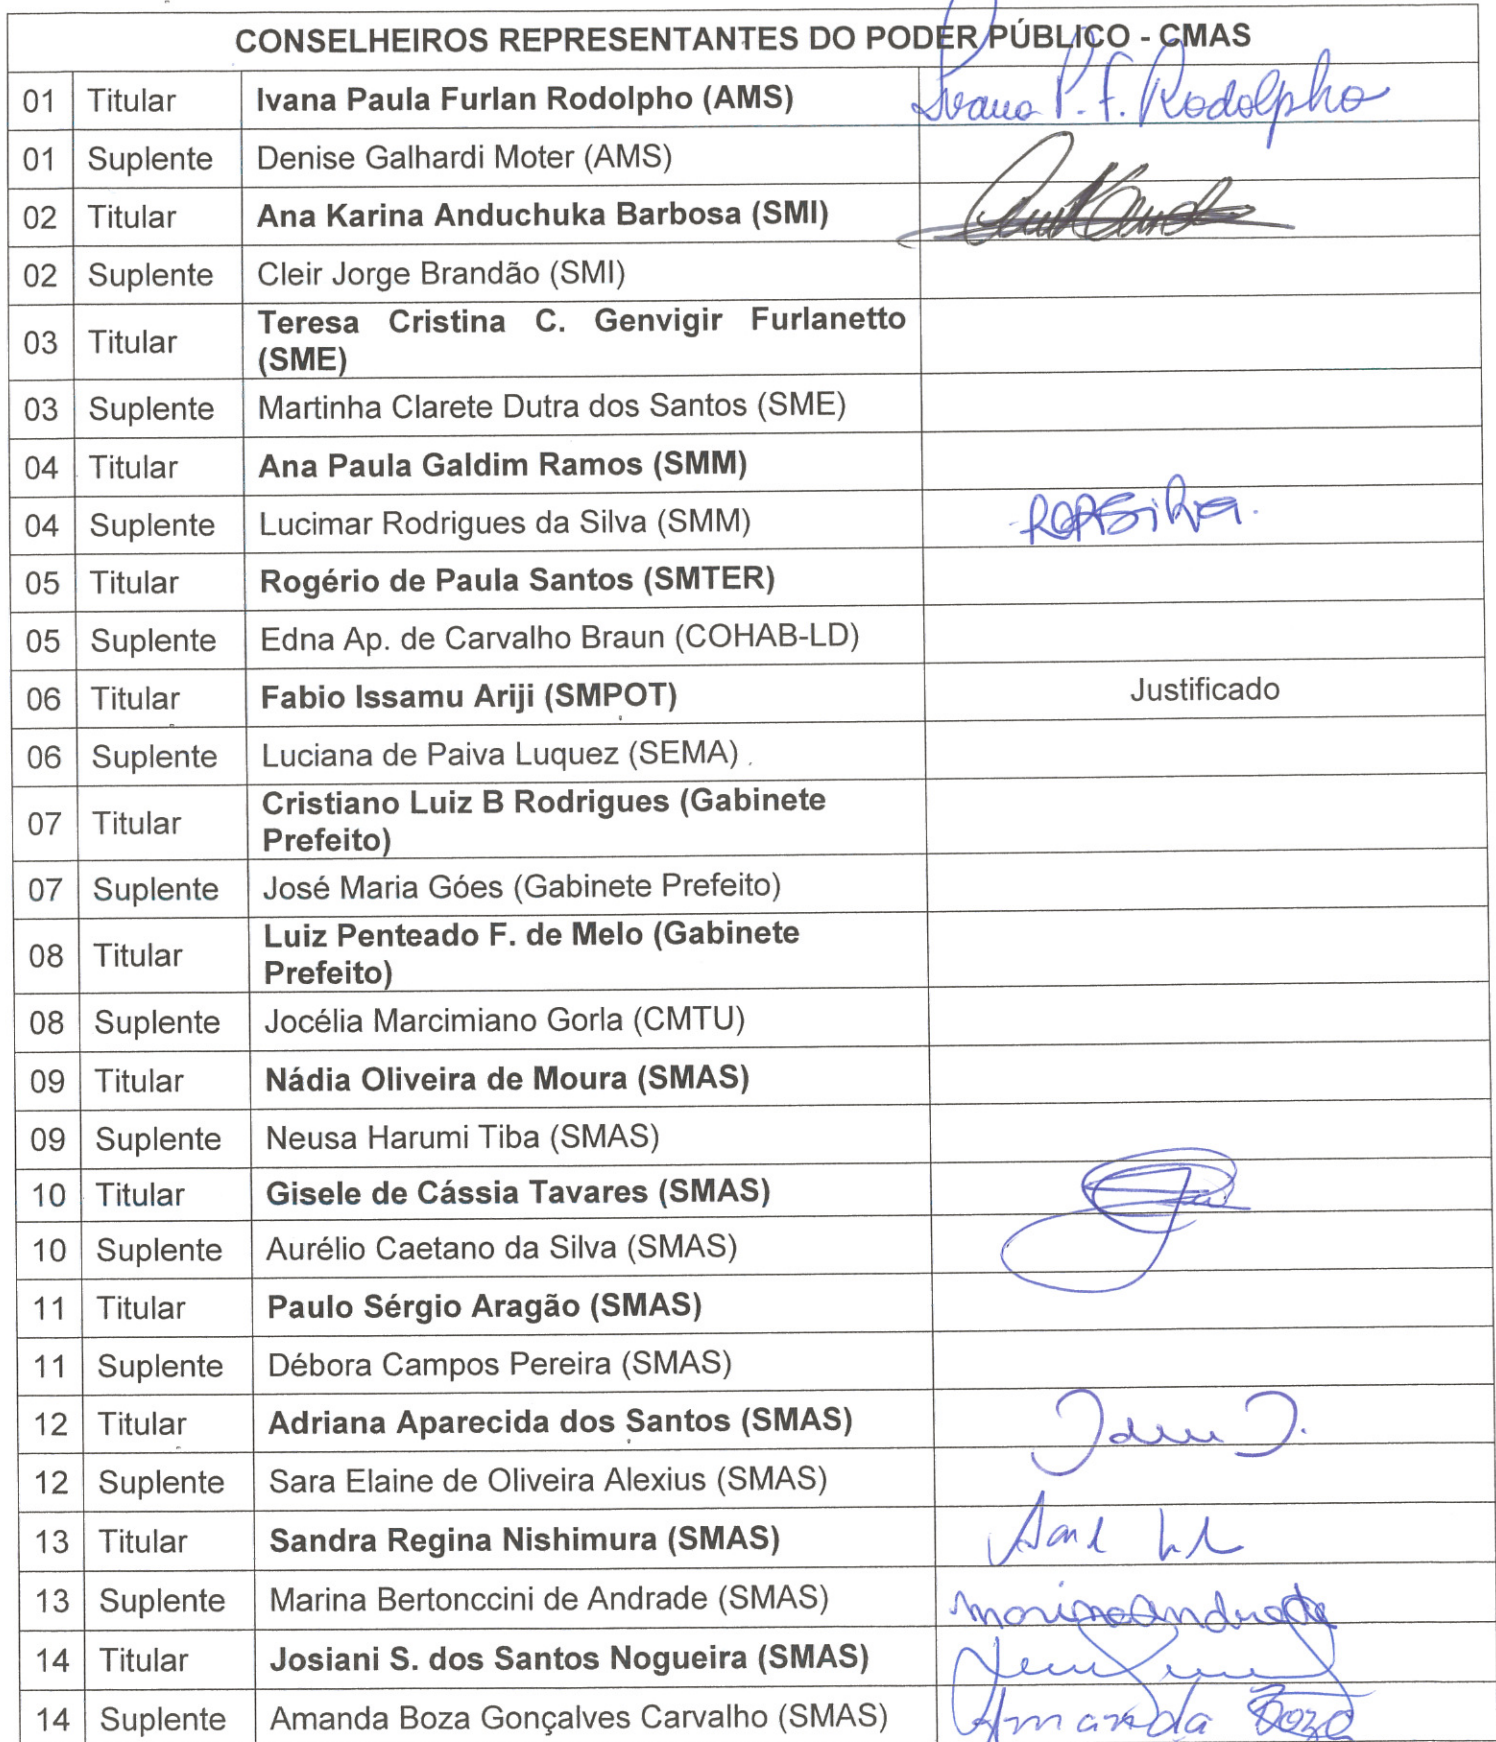 CONSELHEIROS REPRESENTANTES DO PODER PÚBLICO - CMAS
01 Titular Ivana Paula Furlan Rodolpho (AMS) Ivana P. F. Rodolpho
01 Suplente Denise Galhardi Moter (AMS)
02 Titular Ana Karina Anduchuka Barbosa (SMI)
02 Suplente Cleir Jorge Brandão (SMI)
03 Titular Teresa Cristina C. Genvigir Furlanetto
(SME)
03 Suplente Martinha Clarete Dutra dos Santos (SME)
04 Titular Ana Paula Galdim Ramos (SMM)
04 Suplente Lucimar Rodrigues da Silva (SMM)
05 Titular Rogério de Paula Santos (SMTER)
05 Suplente Edna Ap. de Carvalho Braun (COHAB-LD)
06 Titular Fabio Issamu Ariji (SMPOT) Justificado
06 Suplente Luciana de Paiva Luquez (SEMA)
07 Titular Cristiano Luiz B Rodrigues (Gabinete
Prefeito)
07 Suplente José Maria Góes (Gabinete Prefeito)
08 Titular Luiz Penteado F. de Melo (Gabinete
Prefeito)
08 Suplente Jocélia Marcimiano Gorla (CMTU)
09 Titular Nádia Oliveira de Moura (SMAS)
09 Suplente Neusa Harumi Tiba (SMAS)
10 Titular Gisele de Cássia Tavares (SMAS)
10 Suplente Aurélio Caetano da Silva (SMAS)
11 Titular Paulo Sérgio Aragão (SMAS)
11 Suplente Débora Campos Pereira (SMAS)
12 Titular Adriana Aparecida dos Santos (SMAS)
12 Suplente Sara Elaine de Oliveira Alexius (SMAS)
13 Titular Sandra Regina Nishimura (SMAS)
13 Suplente Marina Bertonccini de Andrade (SMAS) Marina Andrade
14 Titular Josiani S. dos Santos Nogueira (SMAS)
14 Suplente Amanda Boza Gonçalves Carvalho (SMAS) Amanda Boza